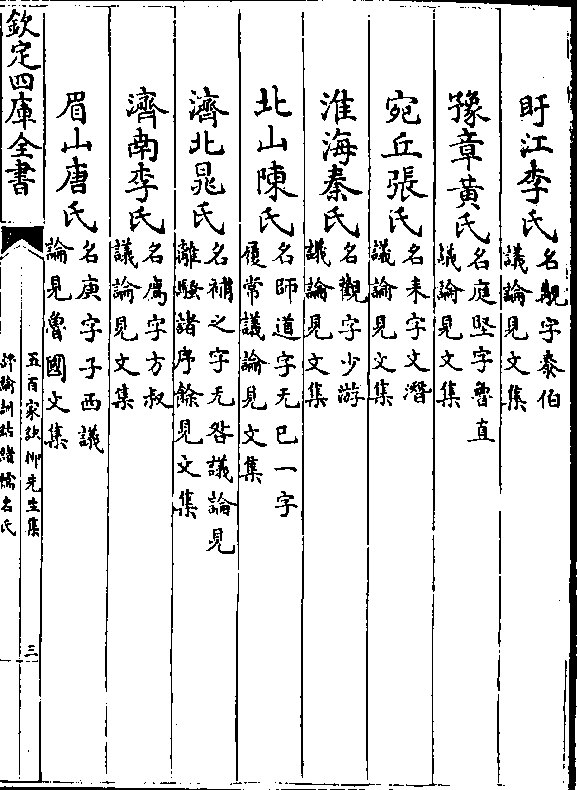 盱江李氏名覯字泰伯議論見文集
豫章黃氏名庭堅字魯直議論見文集
宛丘張氏名耒字文潛議論見文集
淮海秦氏名觀字少游議論見文集
北山陳氏名師道字无已一字履常議論見文集
濟北晁氏名補之字无咎議論見離騷諸序餘見文集
濟南李氏名廌字方叔議論見文集
眉山唐氏名庚字子西議論見魯國文集
欽定四庫全書
五百家註柳先生集
評論訓詁諸儒名氏
三